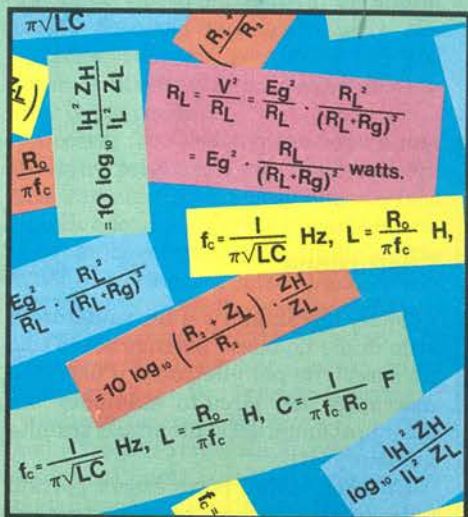 π√LC
(R₂ +
R₂
Z_L)
= 10 log₁₀ I_H² Z_H / I_L² Z_L
R_L = V² / R_L = Eg² / R_L · R_L² / (R_L+Rg)²
= Eg² · R_L / (R_L+Rg)² watts.
R₀ / πf_c
f_c = 1 / π√LC Hz, L = R₀ / πf_c H,
Eg² / R_L · R_L² / (R_L+Rg)²
= 10 log₁₀ (R₂ + Z_L / R₂) · Z_H / Z_L
f_c = 1 / π√LC Hz, L = R₀ / πf_c H, C = 1 / πf_c R₀ F
log₁₀ I_H² Z_H / I_L² Z_L
f_c =